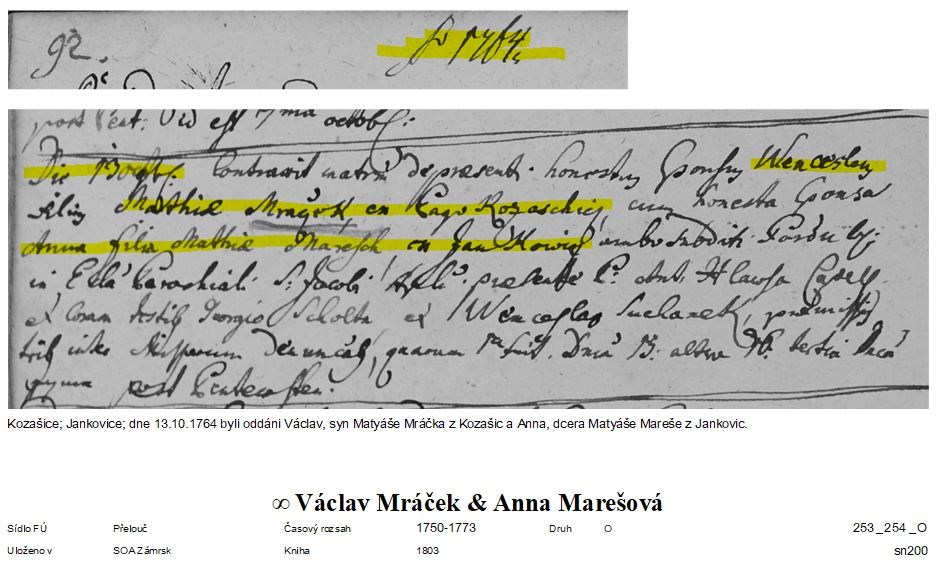 92.
1764.
post Pent: Vid est 17ma octob:
Die 13 Contraxit matrim de present. honestus Wenceslaus
filius Mathiæ Mraček ex Pago Kozaschic, cum honesta
Anna filia Mathiæ Maresch ex Jankowic ambo
in Parochiali S. Jacobi presente P. Ant: Hlawsa
et coram Georgio et Wenceslao Suchanek, præmissis
tribus inter denunciat, quarum 1ma fuit Dnica 15. altera 16. tertia Dnica
post Pentecosten.
Kozašice; Jankovice; dne 13.10.1764 byli oddáni Václav, syn Matyáše Mráčka z Kozašic a Anna, dcera Matyáše Mareše z Jankovic.
∞ Václav Mráček & Anna Marešová
Sídlo FÚ Přelouč Časový rozsah 1750-1773 Druh O 253_254_O
Uloženo v SOA Zámrsk Kniha 1803 sn200